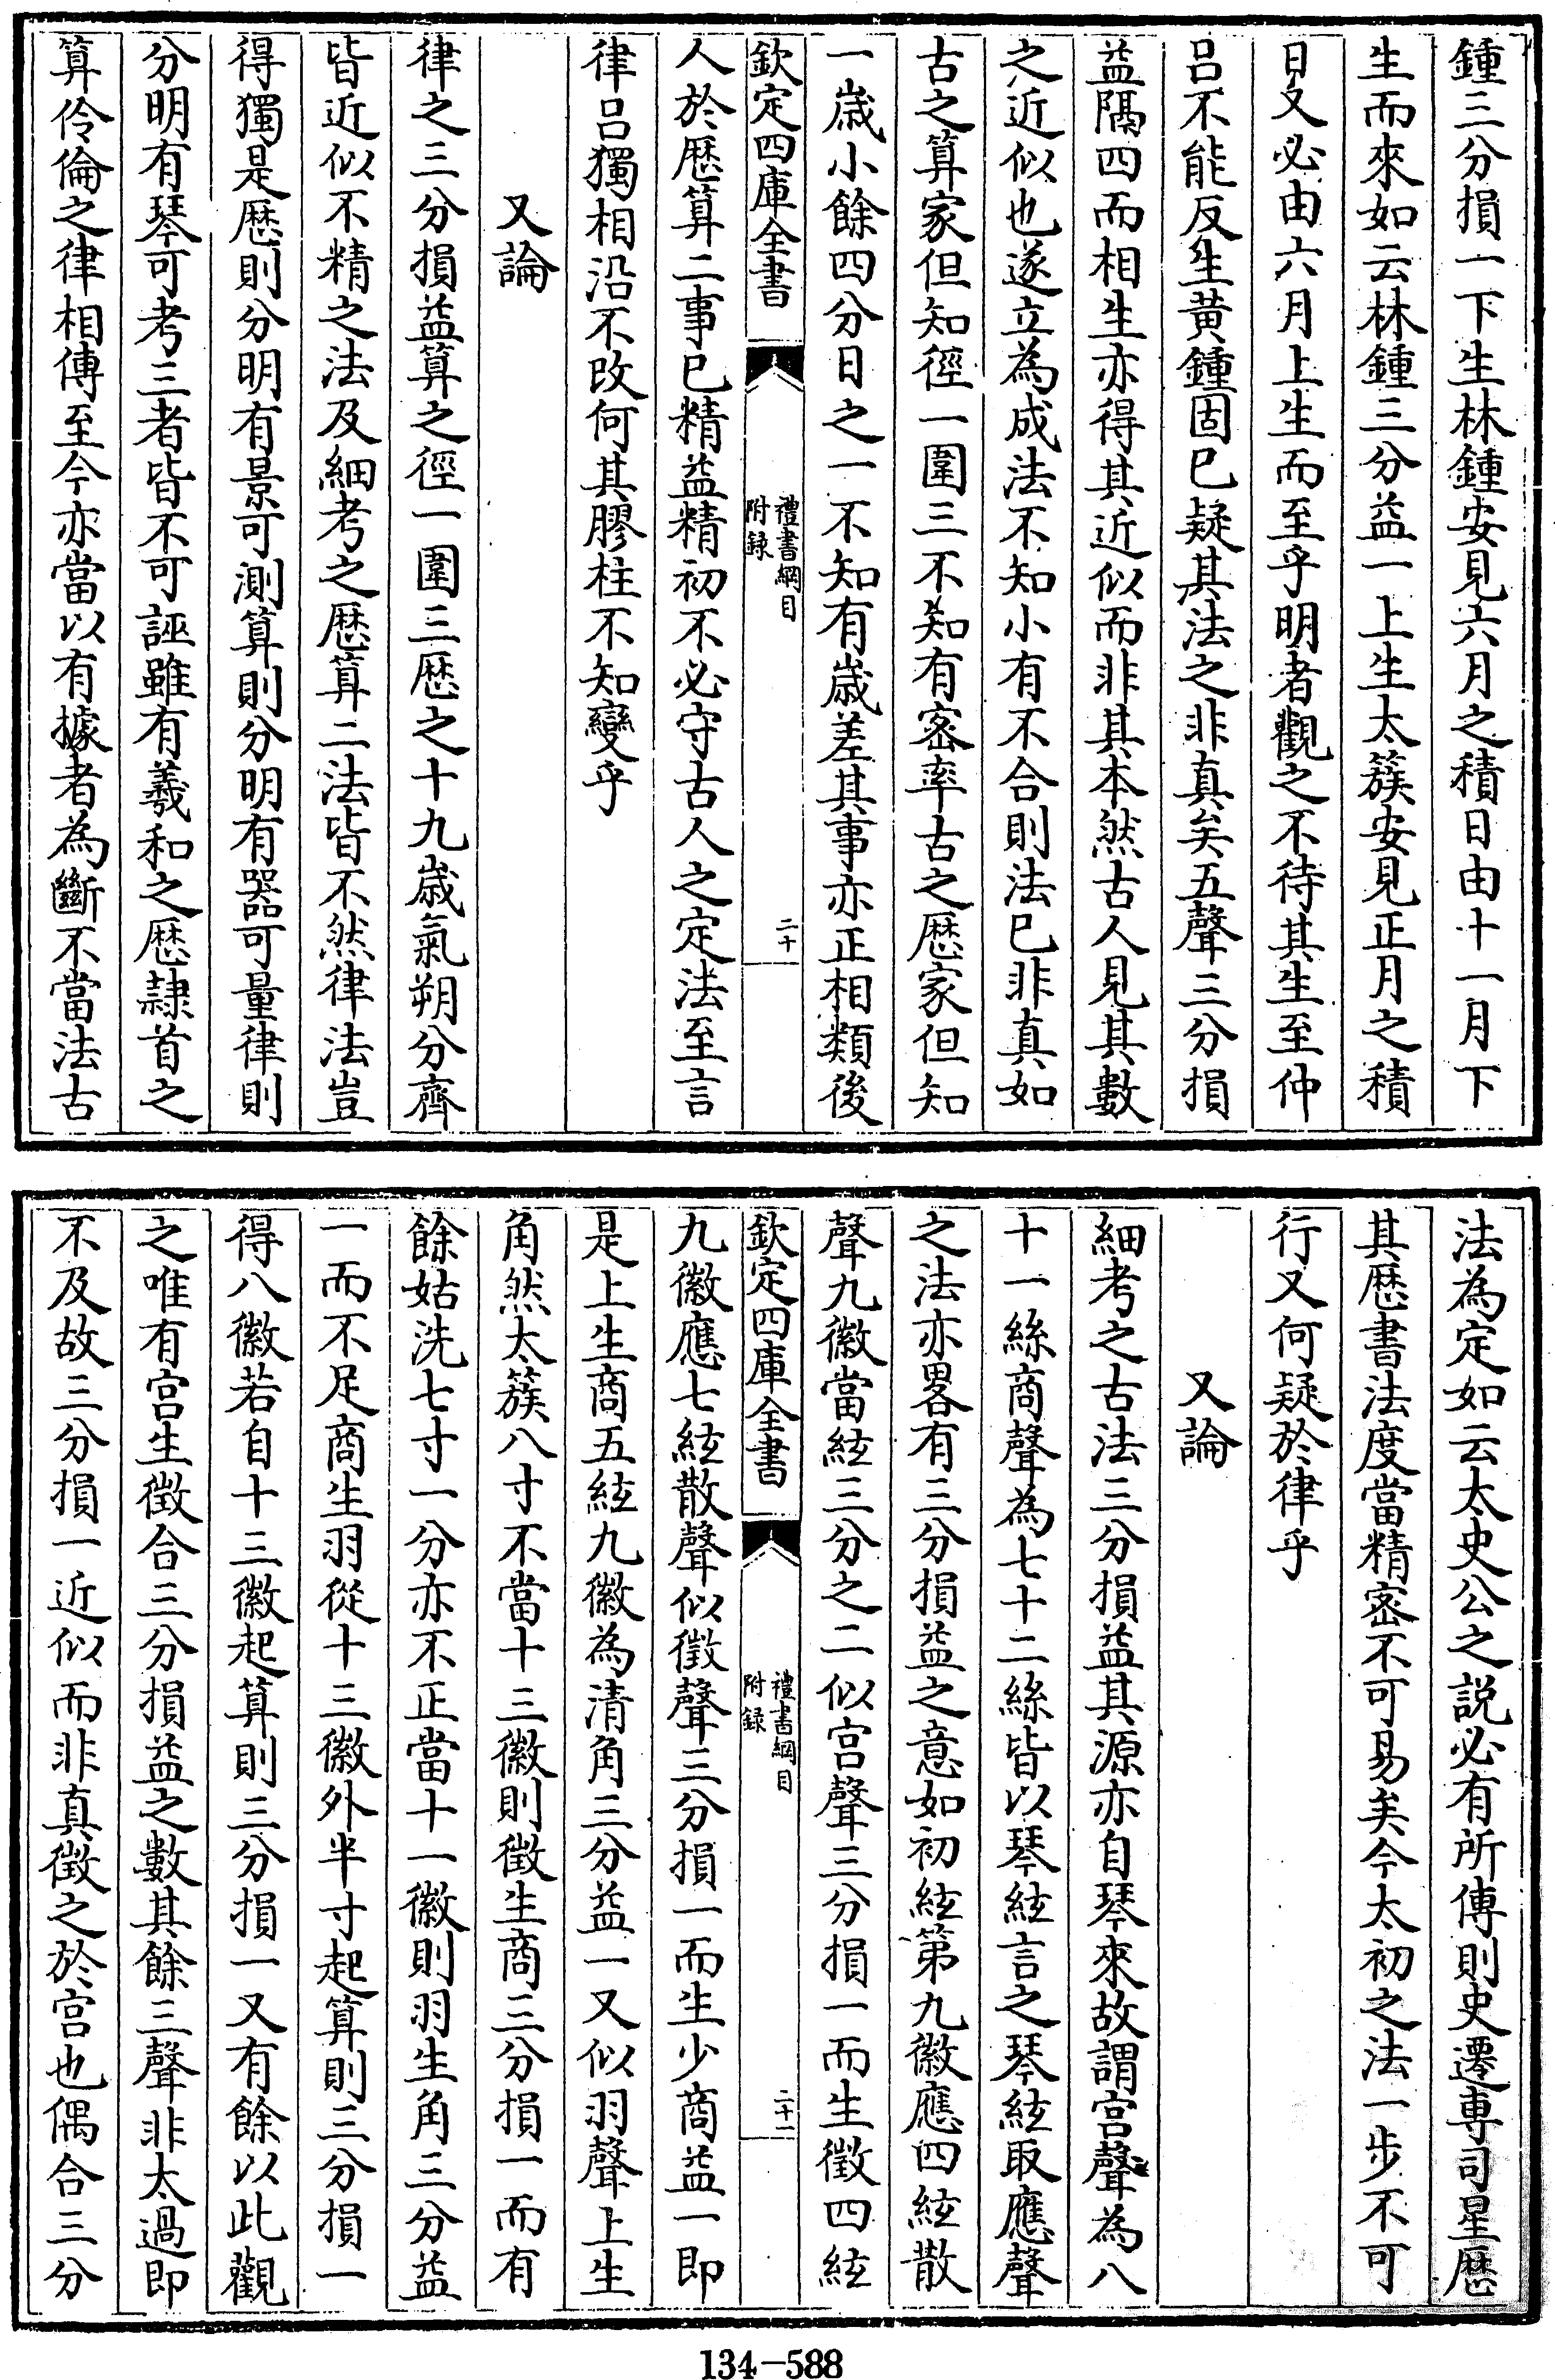 鍾三分損一下生林鍾安見六月之積日由十一月下
生而來如云林鍾三分益一上生太簇安見正月之積
日又必由六月上生而至乎明者觀之不待其生至仲
呂不能反生黃鍾固已疑其法之非真矣五聲三分損
益隔四而相生亦得其近似而非其本然古人見其數
之近似也遂立為成法不知小有不合則法已非真如
古之算家但知徑一圍三不知有密率古之厯家但知
一歲小餘四分日之一不知有歲差其事亦正相類後
欽定四庫全書
禮書綱目
附録
二十
人於厯算二事已精益精初不必守古人之定法至言
律呂獨相沿不改何其膠柱不知變乎
又論
律之三分損益算之徑一圍三厯之十九歲氣朔分齊
皆近似不精之法及細考之厯算二法皆不然律法豈
得獨是厯則分明有景可測算則分明有器可量律則
分明有琴可考三者皆不可誣雖有羲和之厯隷首之
算伶倫之律相傳至今亦當以有據者為斷不當法古
法為定如云太史公之說必有所傳則史遷專司星厯
其厯書法度當精密不可易矣今太初之法一步不可
行又何疑於律乎
又論
細考之古法三分損益其源亦自琴來故謂宮聲為八
十一絲商聲為七十二絲皆以琴絃言之琴絃取應聲
之法亦畧有三分損益之意如初絃第九徽應四絃散
聲九徽當絃三分之二似宮聲三分損一而生徵四絃
欽定四庫全書
禮書綱目
附録
二十一
九徽應七絃散聲似徵聲三分損一而生少商益一即
是上生商五絃九徽為清角三分益一又似羽聲上生
角然太簇八寸不當十三徽則徵生商三分損一而有
餘姑洗七寸一分亦不正當十一徽則羽生角三分益
一而不足商生羽從十三徽外半寸起算則三分損一
得八徽若自十三徽起算則三分損一又有餘以此觀
之唯有宮生徵合三分損益之數其餘三聲非太過即
不及故三分損一近似而非真徵之於宮也偶合三分
134-588